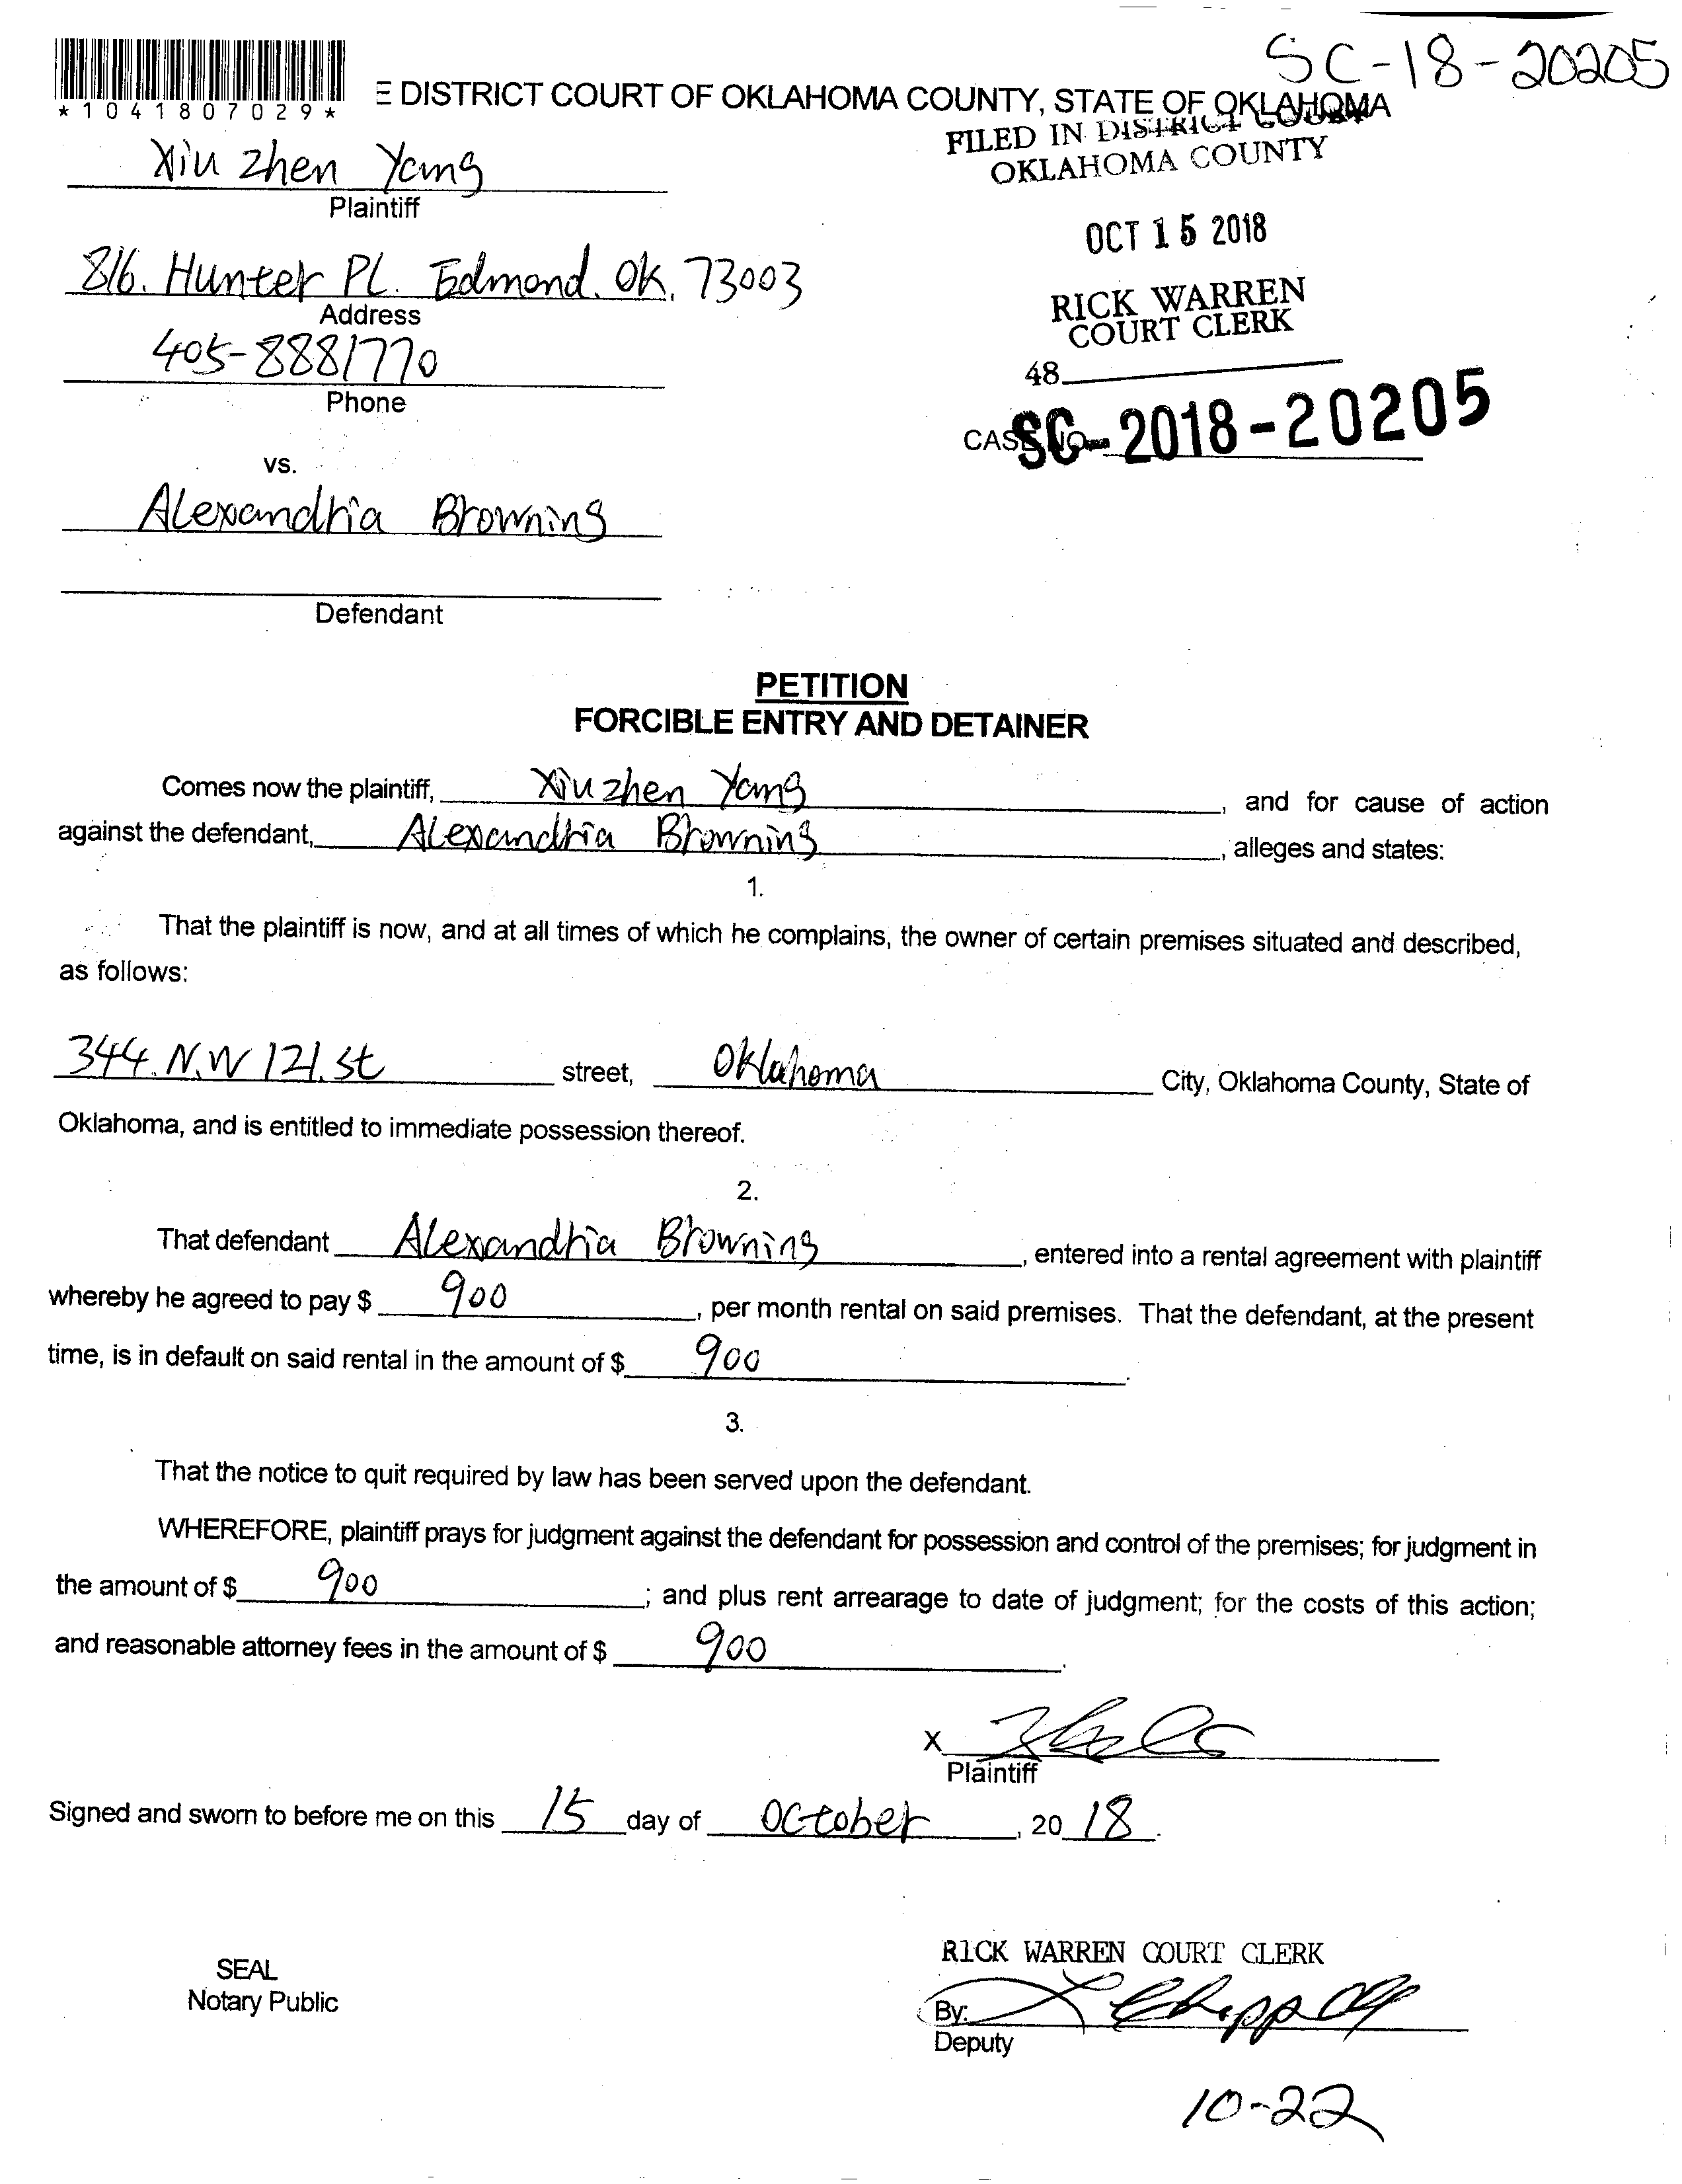 SC-18-20205
*1041807029*
E DISTRICT COURT OF OKLAHOMA COUNTY, STATE OF OKLAHOMA
FILED IN DISTRICT COURT
OKLAHOMA COUNTY
Xiu zhen Yang
Plaintiff
OCT 15 2018
816. Hunter PL. Edmond. OK. 73003
Address
RICK WARREN
COURT CLERK
405-8881770
Phone
48
CASE NO. SC-2018-20205
vs.
Alexandria Browning
Defendant
PETITION
FORCIBLE ENTRY AND DETAINER
Comes now the plaintiff, Xiu zhen Yang, and for cause of action
against the defendant, Alexandria Browning, alleges and states:
1.
That the plaintiff is now, and at all times of which he complains, the owner of certain premises situated and described,
as follows:
344. N.W 121.st street, Oklahoma City, Oklahoma County, State of
Oklahoma, and is entitled to immediate possession thereof.
2.
That defendant Alexandria Browning, entered into a rental agreement with plaintiff
whereby he agreed to pay $ 900, per month rental on said premises. That the defendant, at the present
time, is in default on said rental in the amount of $ 900.
3.
That the notice to quit required by law has been served upon the defendant.
WHEREFORE, plaintiff prays for judgment against the defendant for possession and control of the premises; for judgment in
the amount of $ 900; and plus rent arrearage to date of judgment; for the costs of this action;
and reasonable attorney fees in the amount of $ 900.
X
Plaintiff
Signed and sworn to before me on this 15 day of October, 20 18.
RICK WARREN COURT CLERK
SEAL
Notary Public
By:
Deputy
10-22